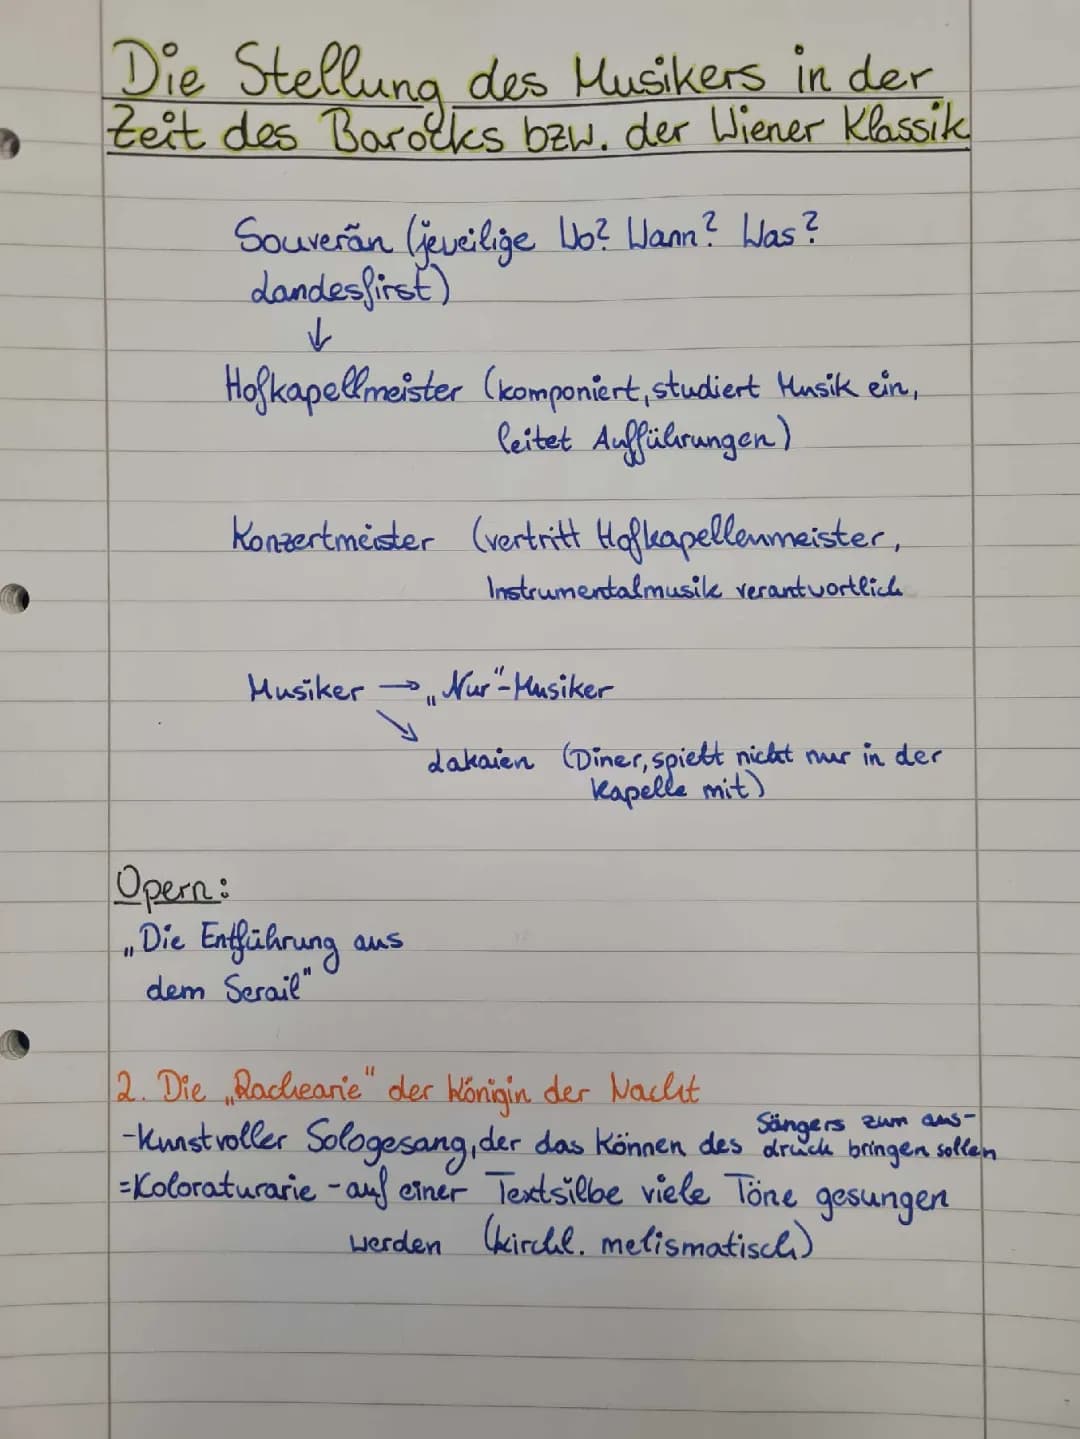 Die Stellung des Musikers in der
Zeit des Barocks bzw. der Wiener Klassik
Souverän (jeweilige Wo? Wann? Was?
Landesfirst)
↓
Hofkapellmeister (komponiert, studiert Musik ein,
leitet Aufführungen)
Konzertmeister (vertritt Hofkapellenmeister,
Instrumentalmusik verantwortlich
Musiker → „Nur"-Musiker
↘
Lakaien (Diner, spielt nicht nur in der
Kapelle mit)
Opern:
„Die Entführung aus
dem Serail"
2. Die „Rachearie" der Königin der Nacht
-Kunstvoller Sologesang, der das Können des Sängers zum aus-
druck bringen sollen
=Koloraturarie - auf einer Textsilbe viele Töne gesungen
werden (kirchl. melismatisch)